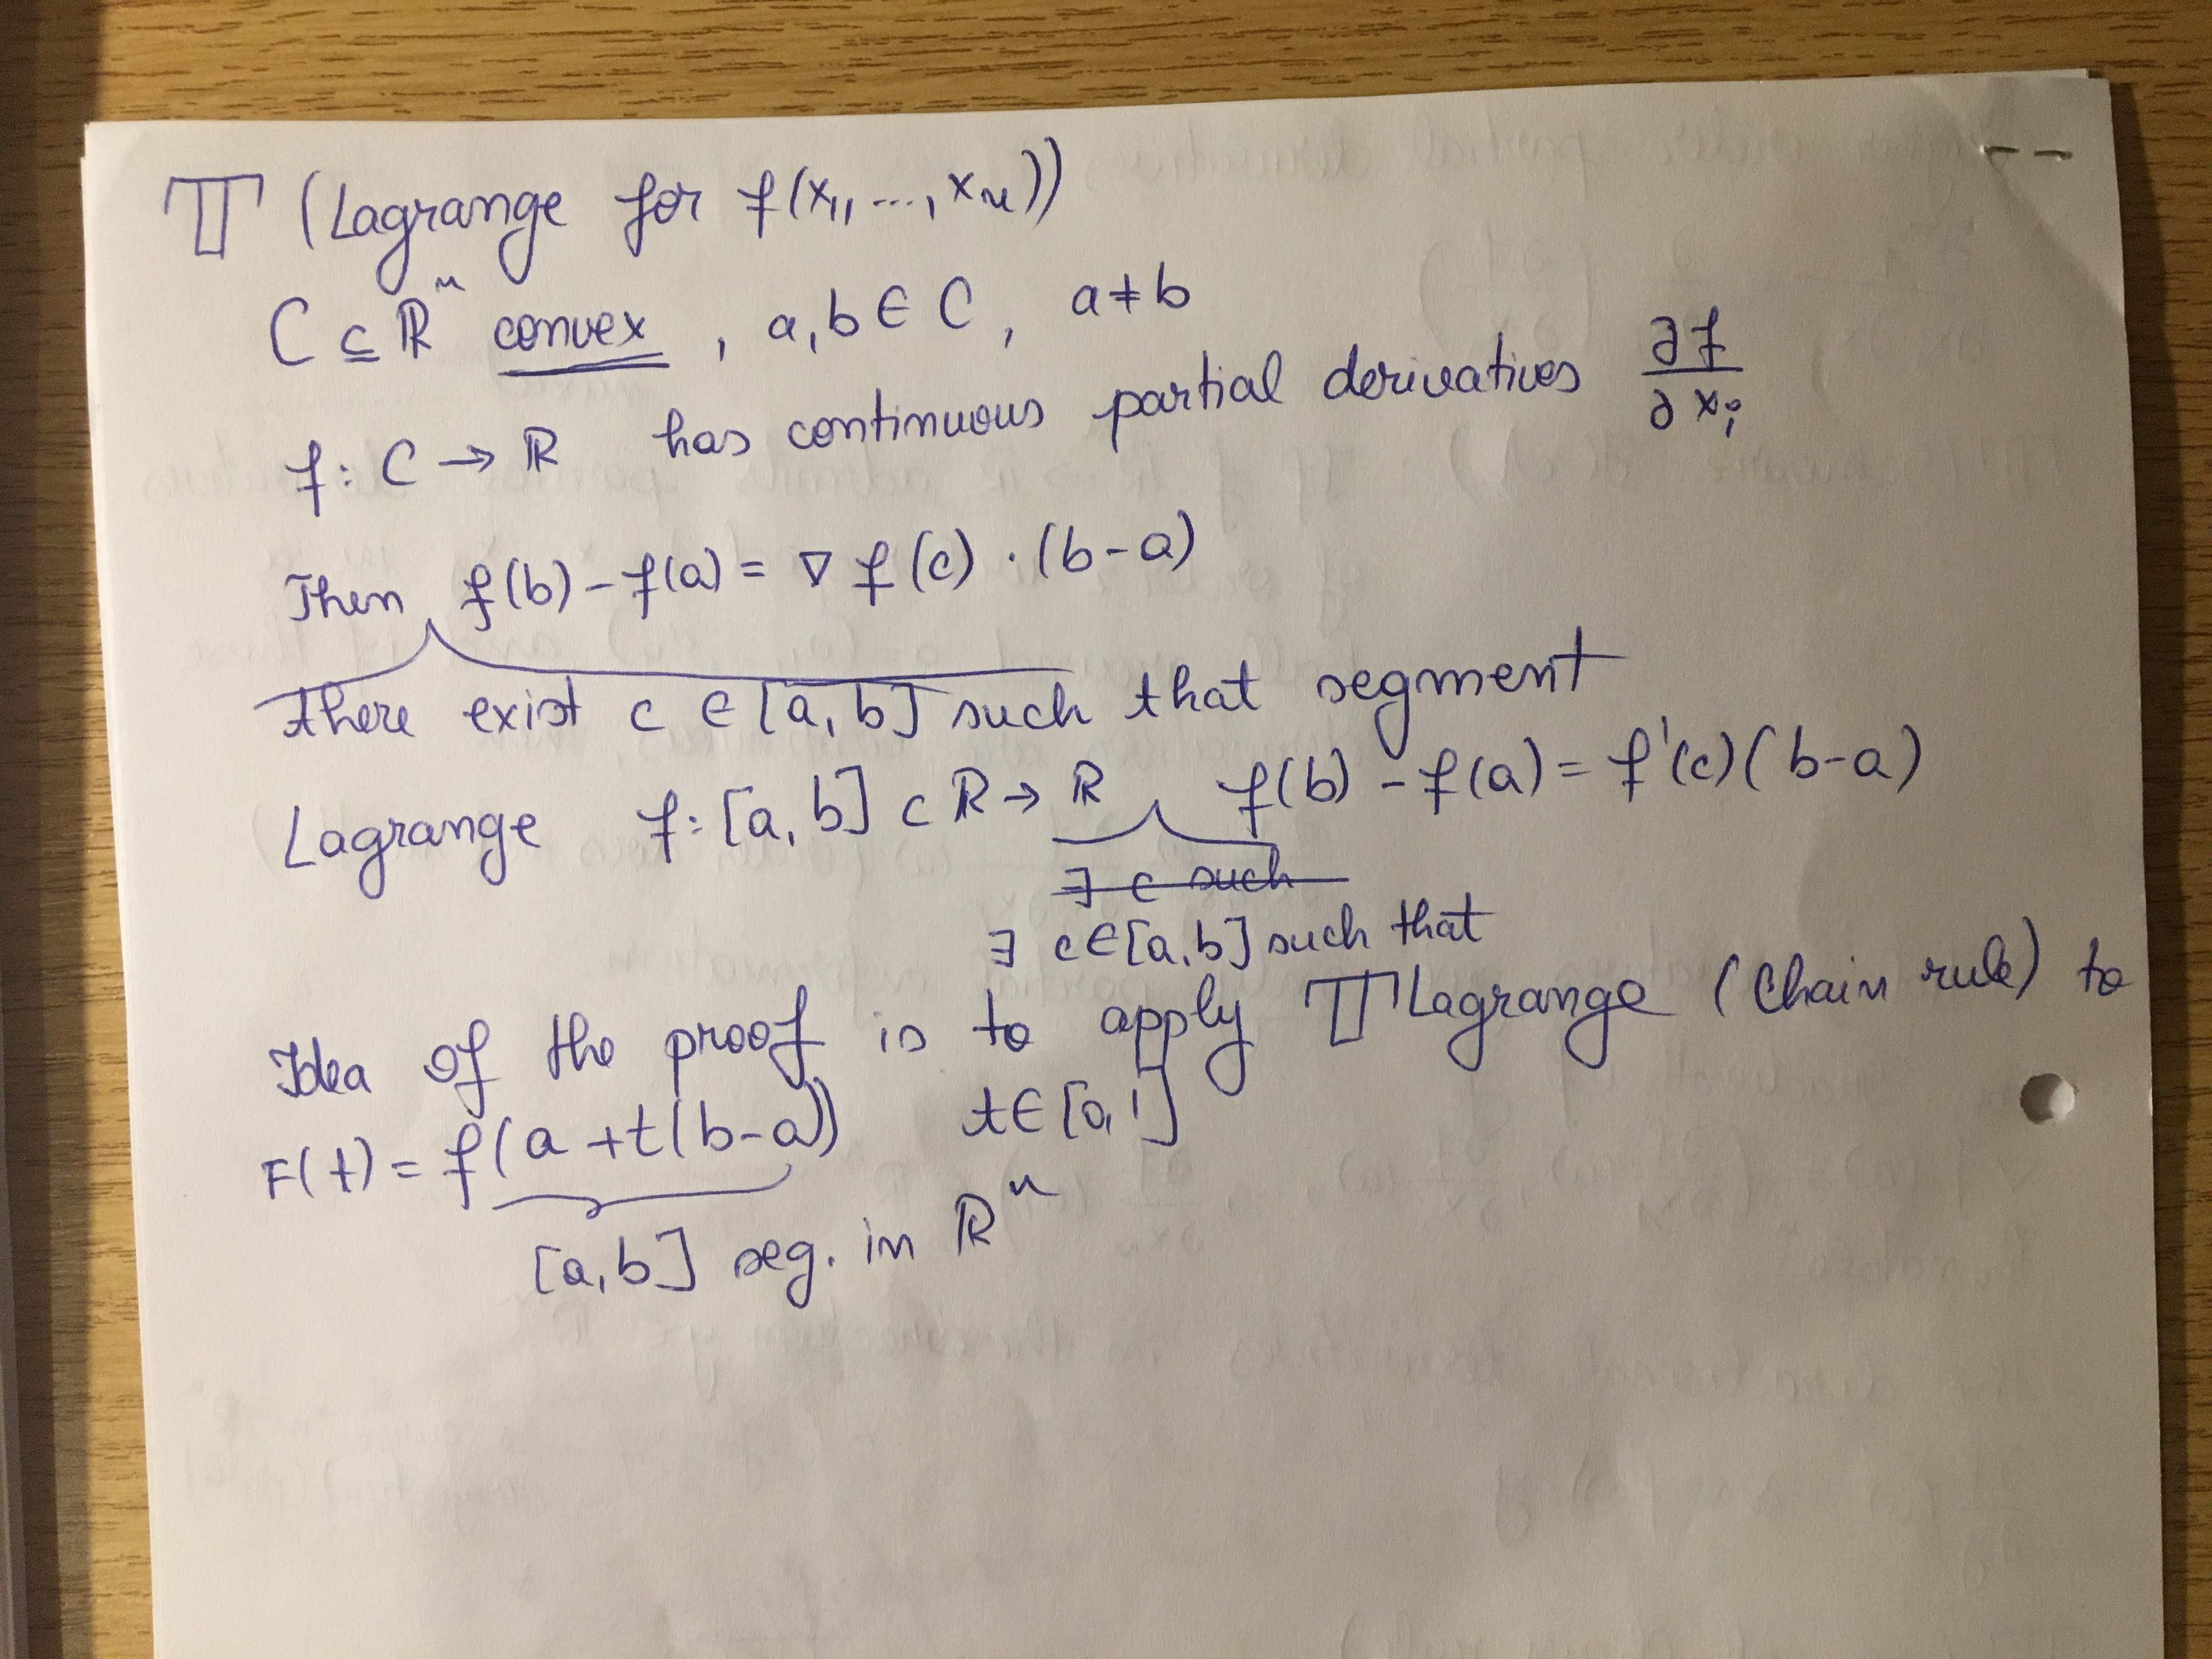 T (Lagrange for f(x₁, ..., xₙ))
C ⊆ ℝⁿ convex, a, b ∈ C, a ≠ b
f: C → ℝ has continuous partial derivatives ∂f/∂xᵢ
Then f(b) - f(a) = ∇ f(c) · (b-a)
there exist c ∈ [a, b] such that segment
Lagrange f: [a, b] ⊂ ℝ → ℝ f(b) - f(a) = f'(c)(b-a)
∃ c such
∃ c ∈ [a, b] such that
Idea of the proof is to apply T Lagrange (Chain rule) to
F(t) = f(a + t(b-a)) t ∈ [0, 1]
[a, b] seg. in ℝⁿ